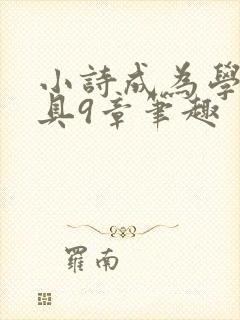 小詩成為學
具9章筆趣
羅南